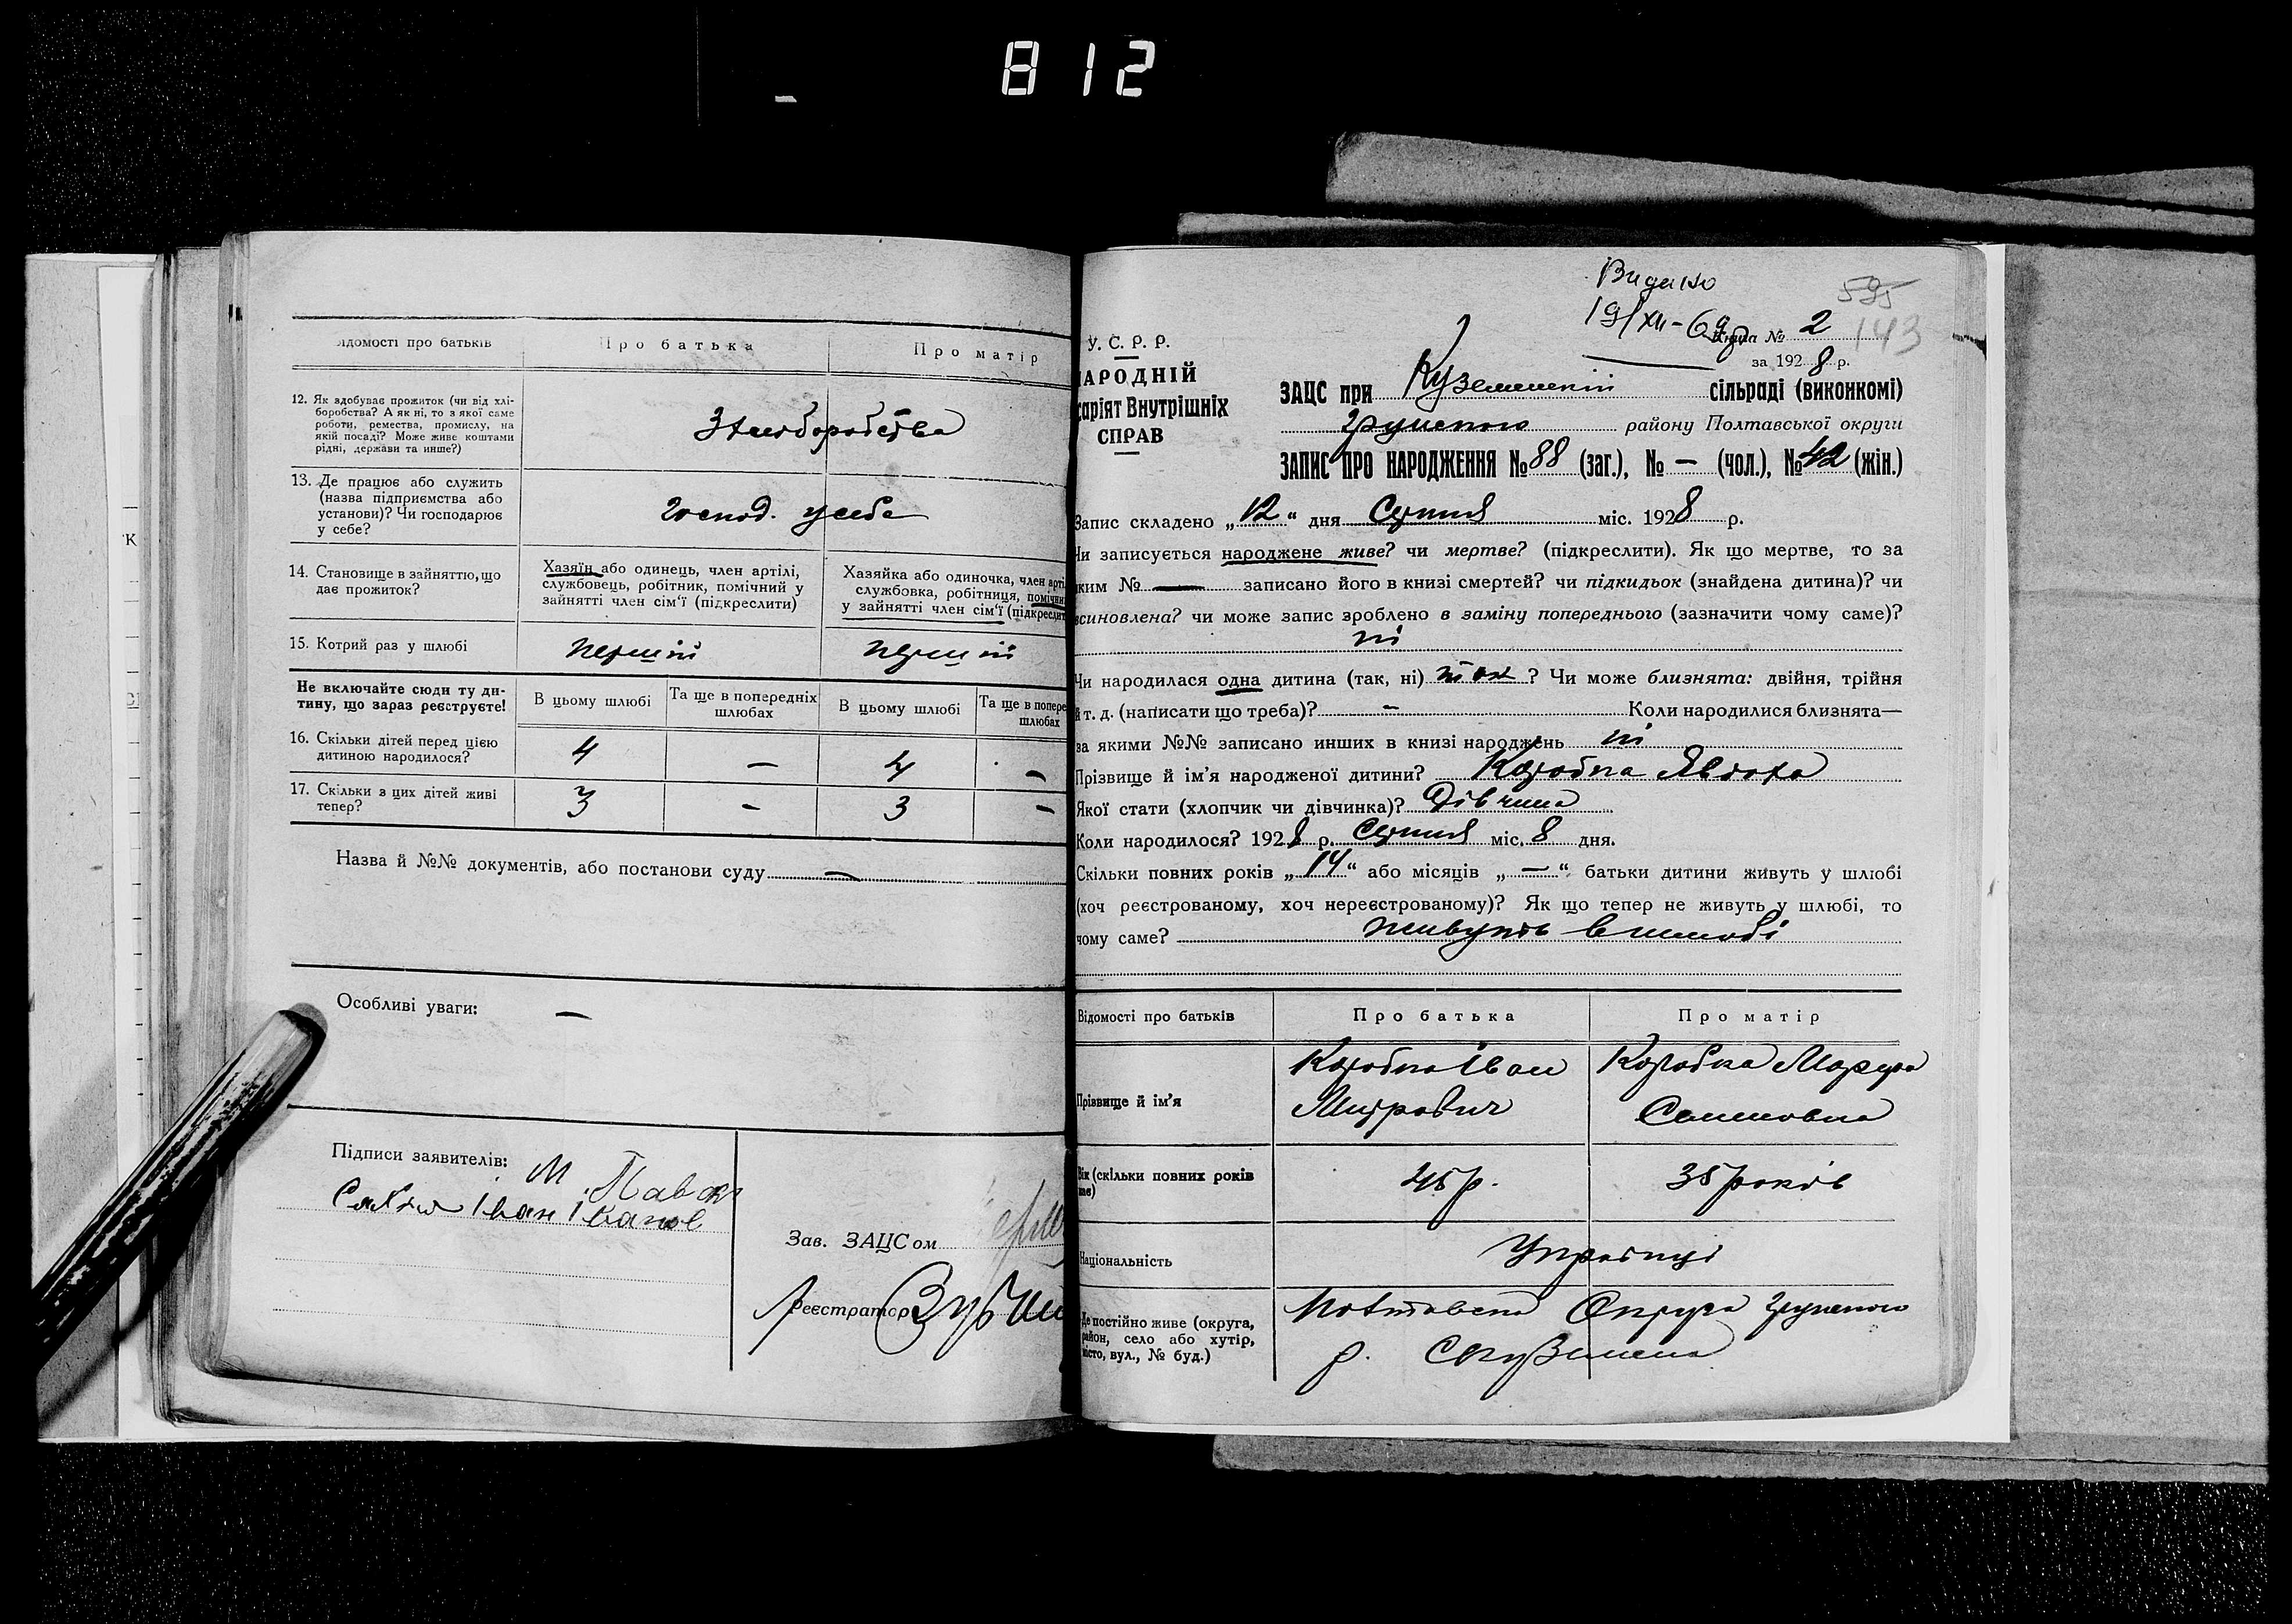 812
К
відомості про батьків
Про батька
Про матір
12. Як здобуває прожиток (чи від хлі-
боробства? А як ні, то з якої саме
роботи, ремества, промислу, на
якій посаді? Може живе коштами
рідні, держави та инше?)
З хліборобства
13. Де працює або служить
(назва підприємства або
установи)? Чи господарює
у себе?
господ. у себе
14. Становище в зайняттю, що
дає прожиток?
Хазяїн або одинець, член артілі,
службовець, робітник, помічний у
зайнятті член сім'ї (підкреслити)
Хазяйка або одиночка, член арті
службовка, робітниця, помічни
у зайнятті член сім'ї (підкреслит
15. Котрий раз у шлюбі
перший
перший
Не включайте сюди ту ди-
тину, що зараз реєструєте!
В цьому шлюбі
Та ще в попередніх
шлюбах
В цьому шлюбі
Та ще в попере
шлюбах
16. Скільки дітей перед цією
дитиною народилося?
4 — 4 —
17. Скільки з цих дітей живі
тепер?
3 — 3 —
Назва й №№ документів, або постанови суду —
Особливі уваги: —
Підписи заявителів:
Іван
Зав. ЗАЦСом
Реєстратор
Видано
19/XII-69
595
143
Книга № 2
за 1928 р.
У. С. Р. Р.
НАРОДНІЙ
саріят Внутрішніх
СПРАВ
ЗАЦС при Куземинскій сільраді (виконкомі)
Грунського району Полтавської округи
ЗАПИС ПРО НАРОДЖЕННЯ № 88 (заг.), № — (чол.), № 42 (жін.)
Запис складено „12“ дня Серпня міс. 1928 р.
Чи записується народжене живе? чи мертве? (підкреслити). Як що мертве, то за
яким № — записано його в книзі смертей? чи підкидьок (знайдена дитина)? чи
всиновлена? чи може запис зроблено в заміну попереднього (зазначити чому саме)?
ні
Чи народилася одна дитина (так, ні) так ? Чи може близнята: двійня, трійня
й т. д. (написати що треба)? — Коли народилися близнята—
за якими №№ записано инших в книзі народжень ні
Прізвище й ім'я народженої дитини? Коробка Явдоха
Якої стати (хлопчик чи дівчинка)? Дівчина
Коли народилося? 1928 р. Серпня міс. 8 дня.
Скільки повних років „14“ або місяців „—“ батьки дитини живуть у шлюбі
(хоч реєстрованому, хоч нереєстрованому)? Як що тепер не живуть у шлюбі, то
чому саме? живуть в шлюбі
Відомості про батьків
Про батька
Про матір
Прізвище й ім'я
Коробка Іван
Митрович
Коробка Маруся
Самловна
Вік (скільки повних років
має)
35 років
Національність
Українці
Де постійно живе (округа,
район, село або хутір,
місто, вул., № буд.)
Полтавська Округа Грунського
р.